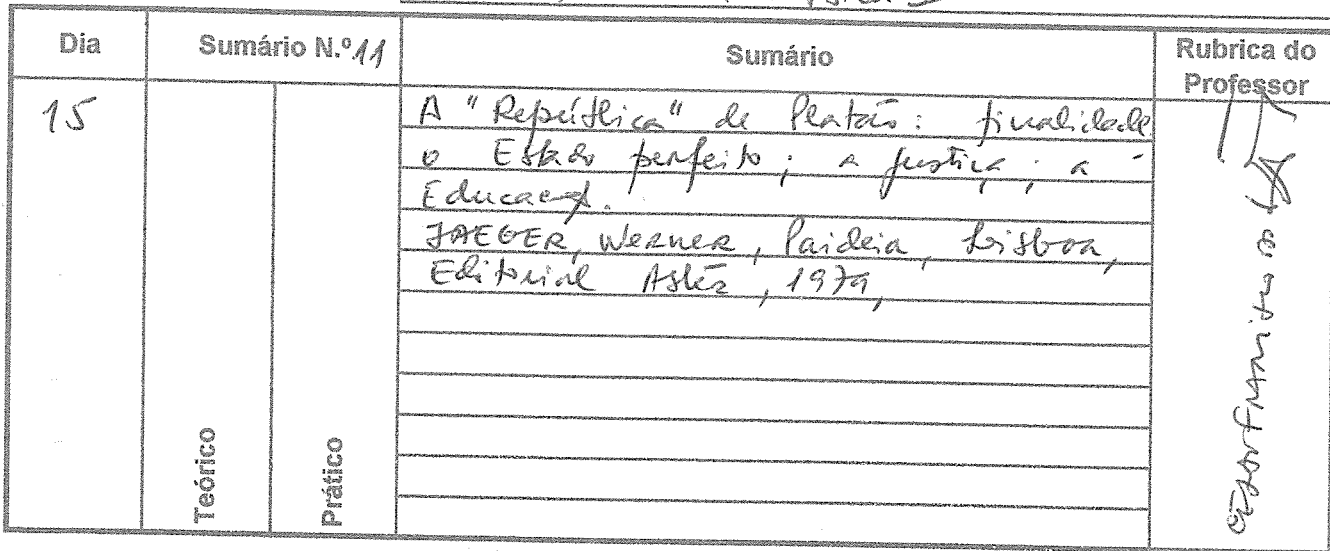 Dia
Sumário N.º 11
Sumário
Rubrica do
Professor
15
A "República" de Platão: finalidade
o Estado perfeito; a justiça; a
Educação.
JAEGER, Werner, Paideia, Lisboa,
Editorial Astér, 1979,
Teórico
Prático